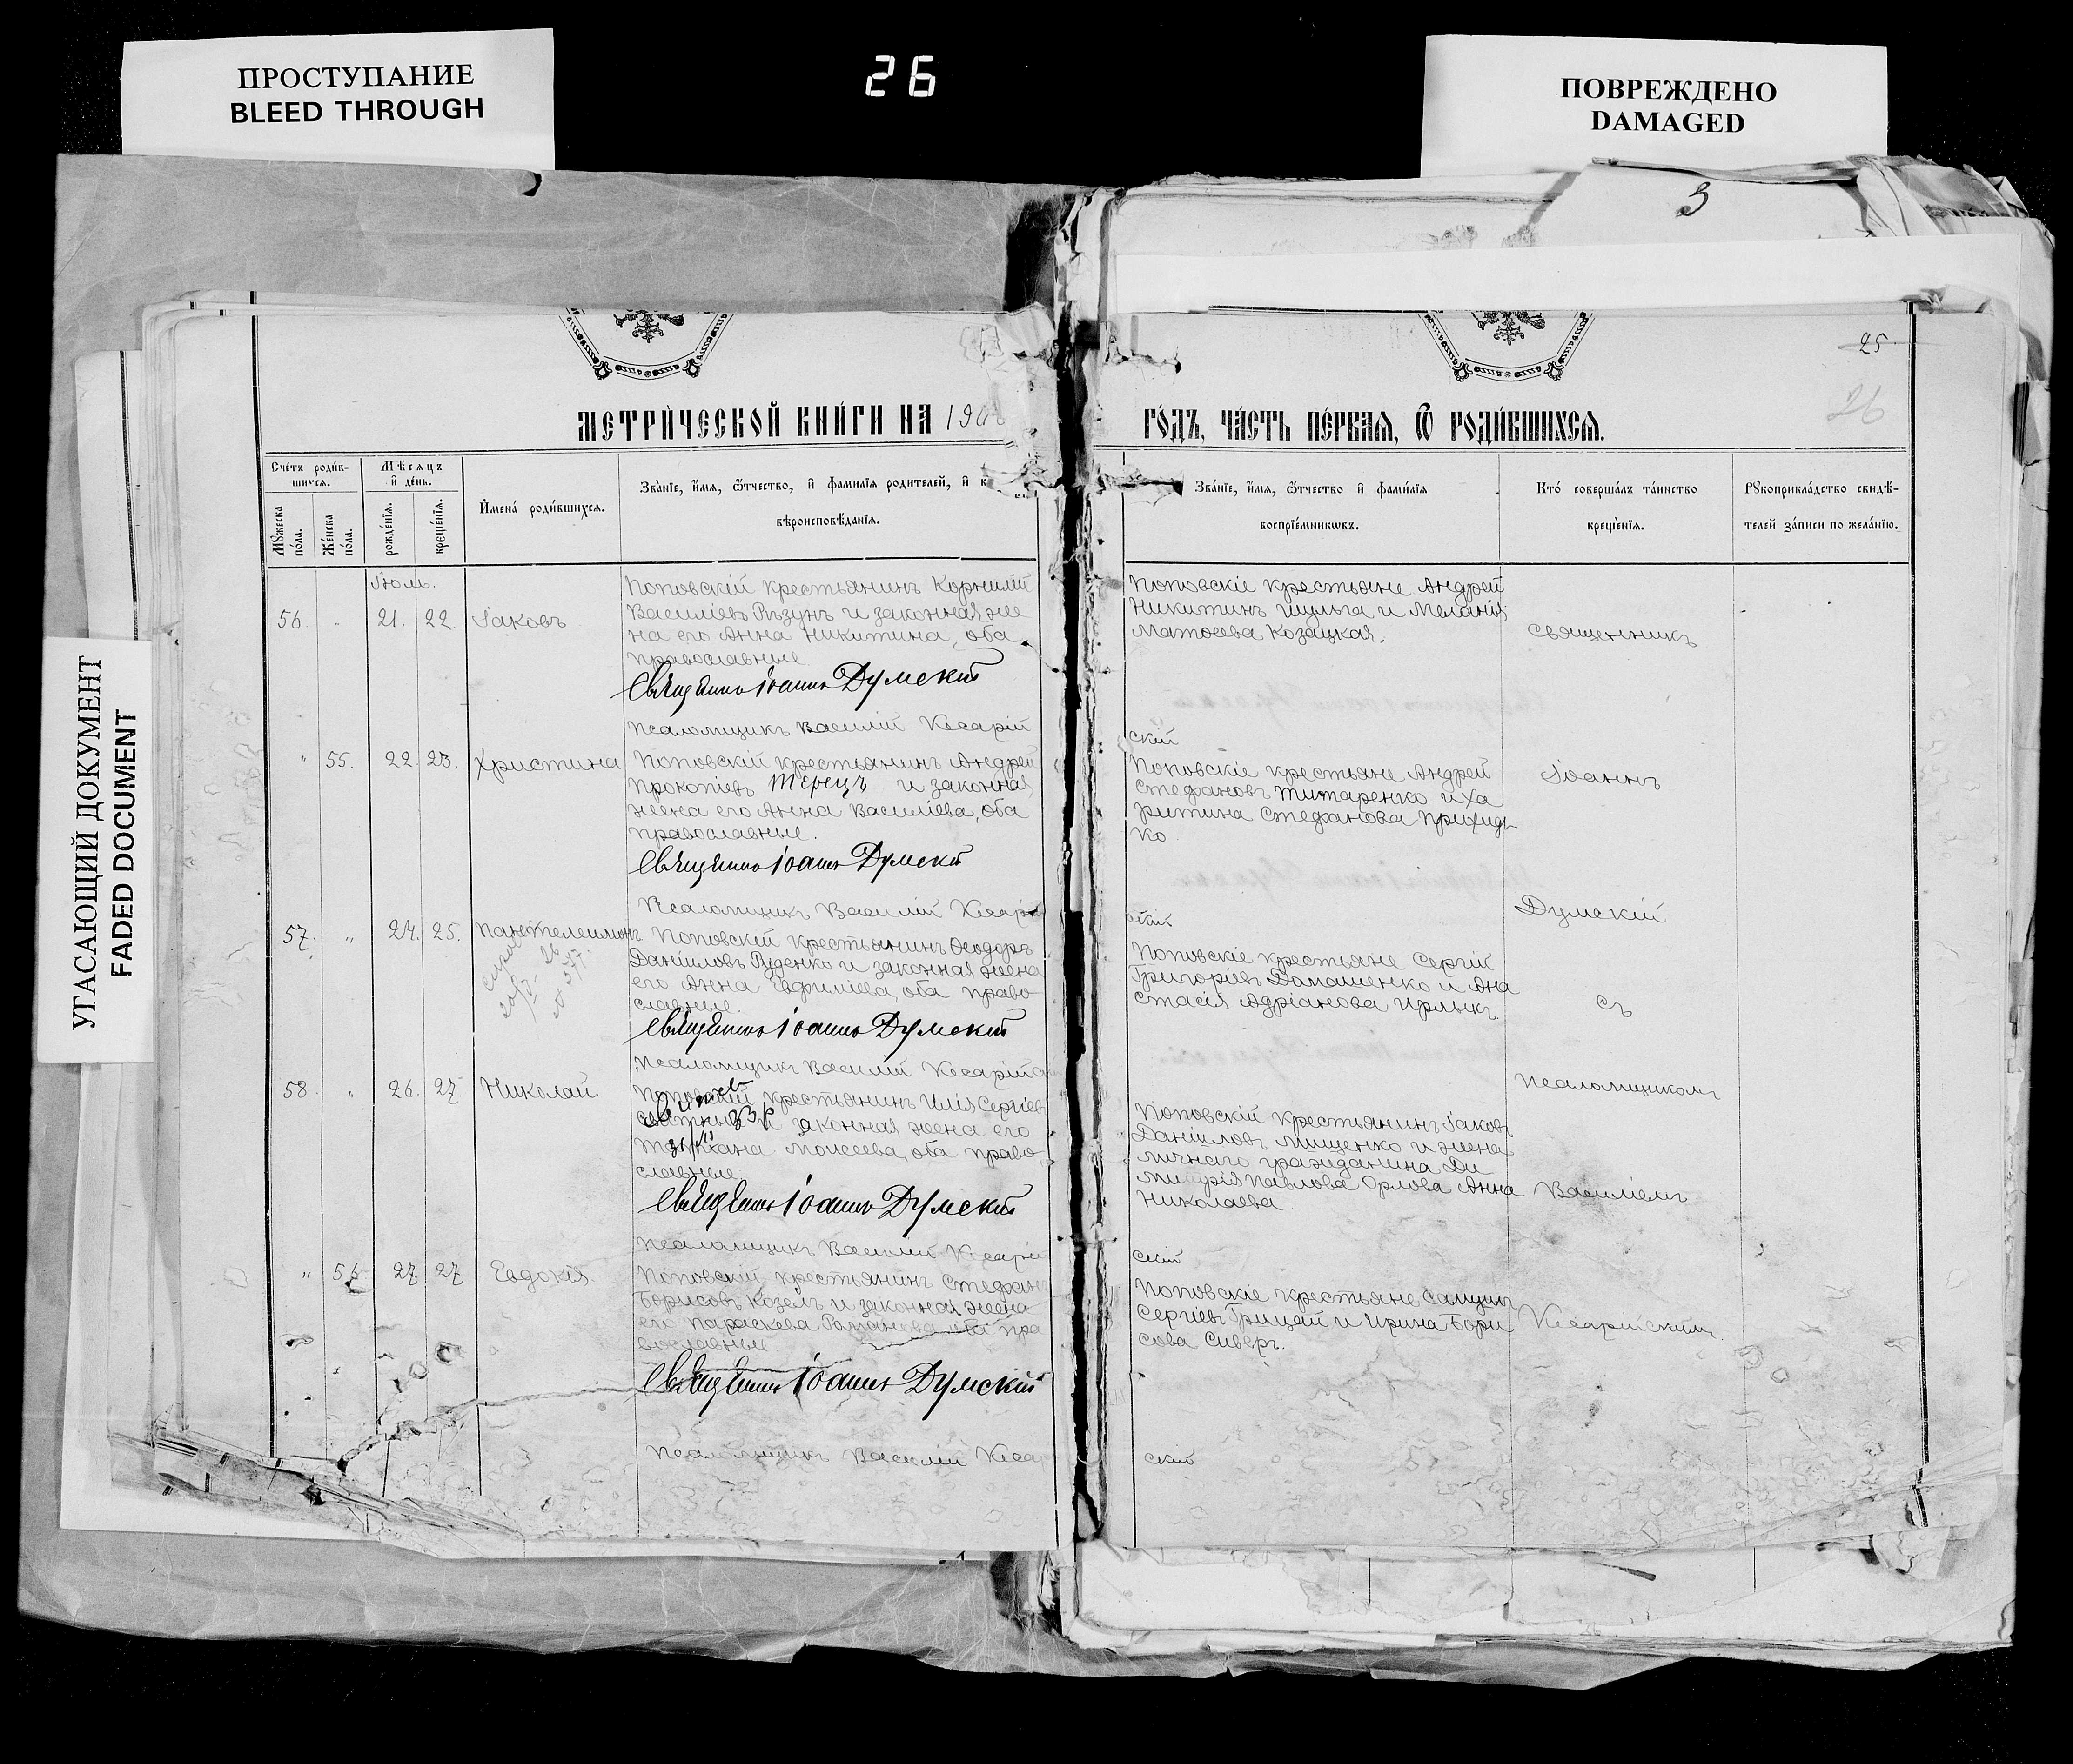 ПРОСТУПАНИЕ
BLEED THROUGH
26
ПОВРЕЖДЕНО
DAMAGED
3
УГАСАЮЩИЙ ДОКУМЕНТ
FADED DOCUMENT
25
26
МЕТРИ́ЧЕСКОЙ КНИ́ГИ НА 190
ГО́ДЪ, ЧА́СТЬ ПЕ́РВАЯ, Ѿ РОДИ́ВШИХСЯ.
Сче́тъ роди́в-
шихся.
Мꙋ́жеска по́ла.
Же́нска по́ла.
Мѣ́сяцъ и де́нь.
рожде́нїя.
креще́нїя.
Имена́ роди́вшихся.
Зва́нїе, и́мя, ѻ҆́тчество, и фами́лїя роди́телей, и к
вѣроисповѣ́данїя.
Зва́нїе, и́мя, ѻ҆́тчество и фами́лїя
воспрїе́мникωвъ.
Кто́ соверша́лъ та́инство
креще́нїя.
Рꙋкоприкла́дство свидѣ́-
телей за́писи по жела́нїю.
Іюль.
56. " 21. 22. Іаковъ
Поповскій крестьянинъ Корнилій
Василіевъ Рѣзунъ и законная же
на его Анна Никитина, оба
православные.
Священникъ Іоаннъ Думскій
Псаломщикъ Василій Кесарій
скій
Поповскіе крестьяне Андрей
Никитинъ Шульга и Меланія
Матѳеева Козацкая.
Священникъ
" 55. 22. 23. Христина
Поповскій крестьянинъ Андрей
Прокопіевъ Терецъ и законная
жена его Анна Василіева, оба
православные.
Священникъ Іоаннъ Думскій
Псаломщикъ Василій Кесарій
скій
Поповскіе крестьяне Андрей
Стефановъ Титаренко и Ха
ритина Стефанова Приходь
ко.
Іоаннъ
57. " 24. 25. Пантелеимонъ
Поповскій крестьянинъ Ѳеодоръ
Даніиловъ Руденко и законная жена
его Анна Евфиміева, оба право
славные.
Священникъ Іоаннъ Думскій
Псаломщикъ Василій Кесарійс
Думскій
Поповскіе крестьяне Сергій
Григоріевъ Домашенко и Ана
стасія Адріанова Ирлыкъ.
съ
58. " 26. 27. Николай
Поповскій крестьянинъ Илія Сергіевъ
и законная жена его
Моисеева, оба право
славные.
Священникъ Іоаннъ Думскій
Псаломщикъ Василій Кесарій
скій
Псаломщикомъ
Поповскій крестьянинъ Іаковъ
Даніиловъ Мищенко и жена
личнаго гражданина Ди
митрія Павлова Орлова Анна
Николаева
Василіемъ
" 56 27 27 Евдокія
Поповскій крестьянинъ Стефанъ
Борисовъ Козелъ и законная жена
его Параскева Романова оба пра
вославные
Священникъ Іоаннъ Думскій
Псаломщикъ Василій Кесар
скій
Поповскіе крестьяне Самуилъ
Сергіевъ Грицай и Ирина Бори
сова Сиверъ.
Кесарійскимъ.